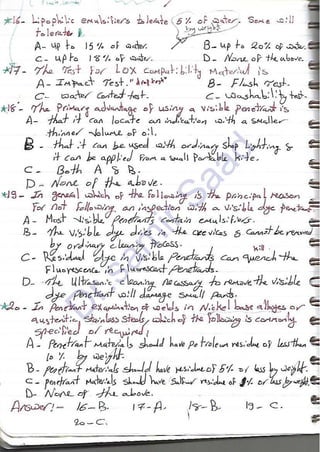 *16- Lipophilic emulsifiers tolerate (5% of water. Some will
by weight
tolerate up to
A- up To 15% of water. B- up to 20% of water.
C- up to 18% of water. D- None of the above.
*17- The Test for LOX Compatibility Material is
A- Impact Test. B- Flash Test.
C- water Content Test. C- washability test.
*18- The Primary advantage of using a visible Penetrant is
A- that it can locate an indication with a smaller
thinner volume of oil.
B- that it can be used with ordinary shop lighting &
it can be applied from a small Portable kite.
C- Both A & B.
D- None of the above.
*19- In general which of the following is the principal reason
For not following an inspection with a visible dye penetrant
A- Most visible Penetrants contain emulsifiers.
B- The visible dye dries in the crevices & cannot be removed
by ordinary cleaning Process.
will
C- Residual dye in visible Penetrants can quench the
Fluorescence in Fluorescent Penetrants.
D- The Ultrasonic cleaning necessary to remove the visible
dye Penetrant will damage small parts.
*20- In Penetrant examination of welds in Nickel base alloys or
austenitic Stainless Steels, which of the following is commonly
specified or required!
A- Penetrant Materials should have Petroleum residue of less than
10 % by weight.
B- penetrant Materials should have residue of 5% or less by weight.
C- penetrant Materials should have Sulfur residue of 1% or less by weight
D- None of the above.
Answer!- 16-B. 17-A. 18-B. 19-C.
20-C.